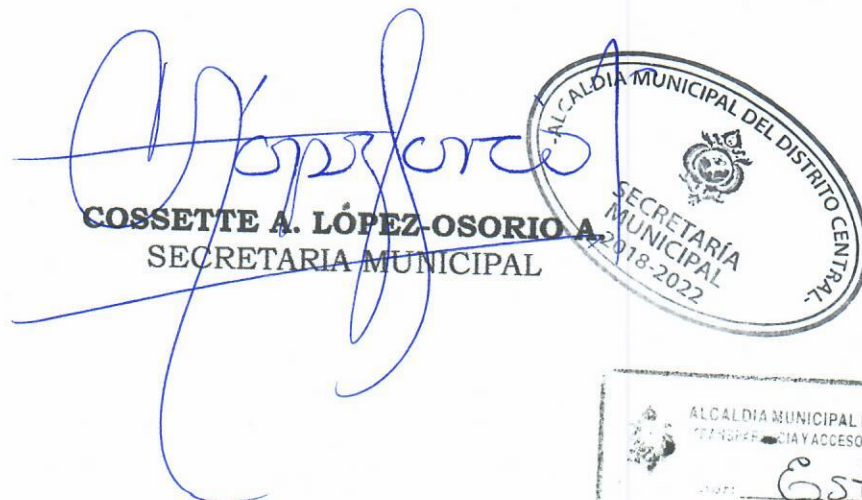 COSSETTE A. LÓPEZ-OSORIO A.
SECRETARIA MUNICIPAL
-ALCALDIA MUNICIPAL DEL DISTRITO CENTRAL-
SECRETARÍA
MUNICIPAL
2018-2022
ALCALDIA MUNICIPAL
Y ACCESO